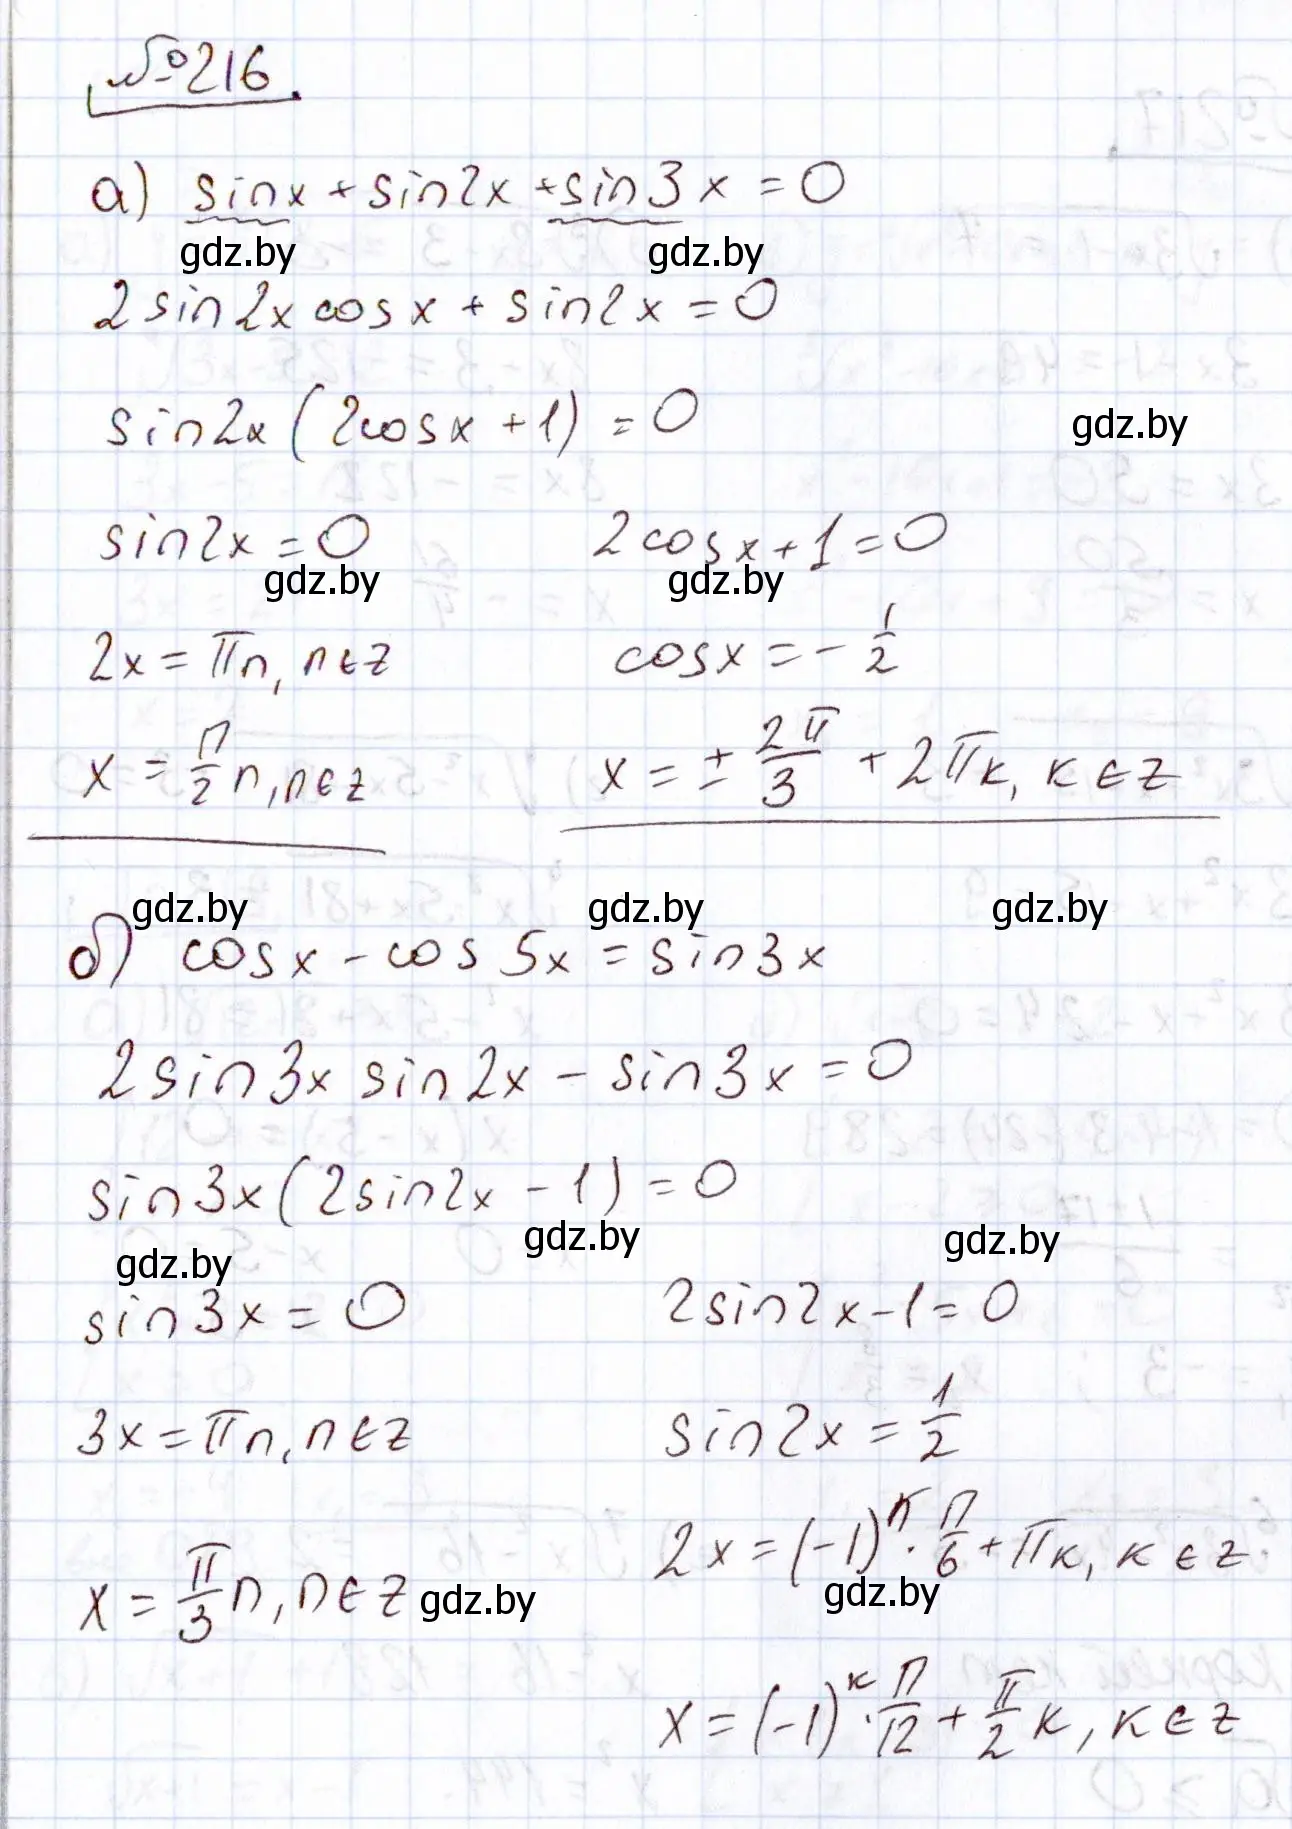 №216
а) sinx + sin2x + sin3x = 0
gdz.by gdz.by
2sin2x cosx + sin2x = 0
sin2x(2cosx + 1) = 0
gdz.by
sin2x = 0 2cosx + 1 = 0
gdz.by gdz.by
2x = πn, n∈z cosx = -1/2
x = π/2 n, n∈z x = ± 2π/3 + 2πк, к∈z
gdz.by gdz.by gdz.by
б) cosx - cos5x = sin3x
2sin3x sin2x - sin3x = 0
sin3x(2sin2x - 1) = 0
gdz.by gdz.by gdz.by
sin3x = 0 2sin2x - 1 = 0
3x = πn, n∈z sin2x = 1/2
x = π/3 n, n∈z 2x = (-1)^к · π/6 + πк, к∈z
gdz.by gdz.by
x = (-1)^к · π/12 + π/2 к, к∈z